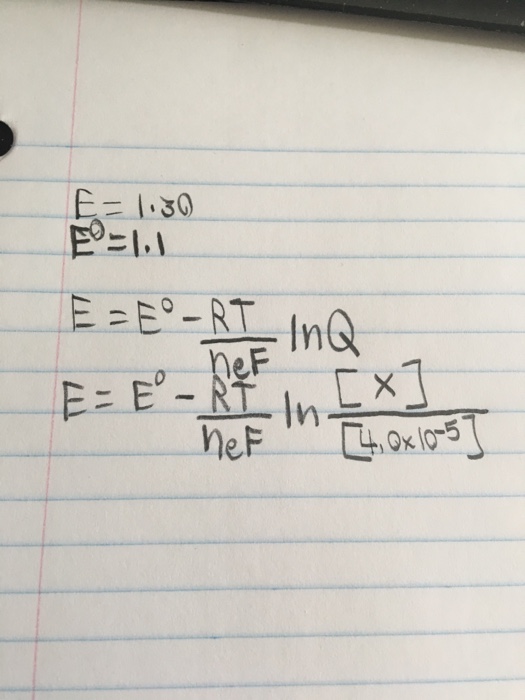 E = 1.30
E⁰ = 1.1
E = E⁰ - RT/neF lnQ
E = E⁰ - RT/neF ln [x]/[4.0x10⁻⁵]